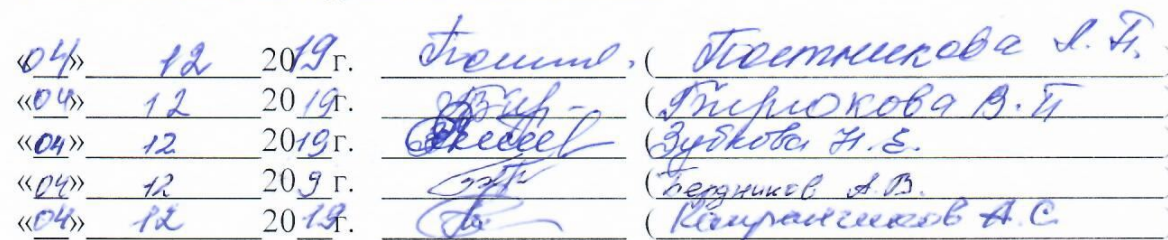 «04» 12 2019г. (Постникова Л.П.
«04» 12 2019г. (Бирюкова В.П
«04» 12 2019г. (Зубкова Н.Е.
«04» 12 209г. (Бердников А.В.
«04» 12 2019г. ( А.С.